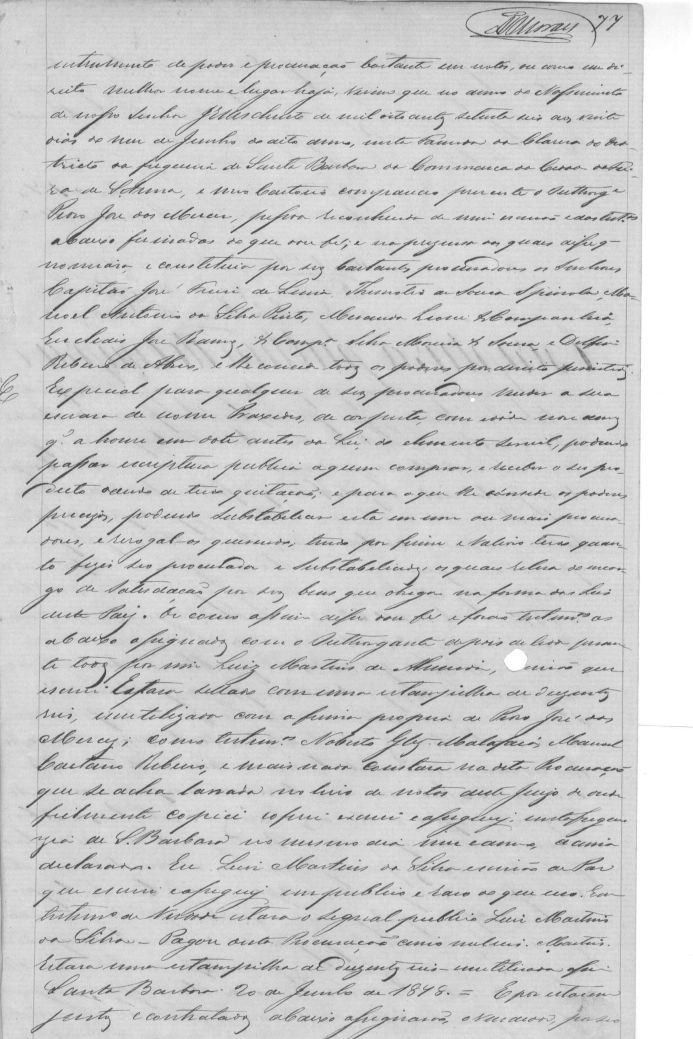 DMoraes 77
intrumento de poder e procuração bastante em notos, ou como em di-
reito milhor nome e lugar haja, virem que no anno do Nassimento
de nosso Senhor Jesus Christo de mil oito centos setenta seis aos vinte
dias do mez de Junho do dito anno, neste
tricto da freguesia de Santa Barbara da Commarca da
de e meu Cartorio compareceo presente o Outhorge
Pedro José das Merces, pessoa reconhecida de mim escrivão e das testas
abaixo firmadas do que dou fé; e na prezença das quais disse q
nomeava e constituia por seos bastantes procuradores os Senhores
Capitão José Freire de Lima, de Souza Spinola, Ma-
noel Antonio da Silva Pinto, Miranda Leoni & Companhia,
Euclides José & Compa Silva Moreira & e
Ribeiro de e lhe concede todos os poderes por direito
Expecial para qualquer de seos procuradores vender a sua
escrava de nome Praxedes, de cor com idade
q. a houve em dote antes da Lei do elemento servil, podendo
passar escriptura publica a quem comprar, e receber o seo pro-
ducto dando de tudo quitação; e para o que lhe concede os poderes
precizos, podendo substabelecer esta em um ou mais procura-
dores, e revogal-os querendo, tendo por firme e valiozo tudo quan-
to fizer seo procurador e Substabelecidos os quais releva do encar-
go de Satisdação por seos bens que obriga na forma das Leis
deste Paiz. De como assim disse dou fé e forão testemas as
abaixo assignadas com o Outhorgante depois de lida peran-
te todos por mim Luiz Martins de escrivão que
escrevi Estava sellada com uma estampilha de duzentos
reis, inutilizada com a firma propria de Pedro José das
Merces; como testemas Noberto Manoel
Caetano Ribeiro, e mais nada constava na dita Procuração
que se acha lansada no livro de notas deste Juizo de onde
fielmente copiei conferi escrevi e assignei; nesta fregue-
zia de S. Barbara no mesmo dia mez e anno acima
declarado. Eu Luiz Martins da Silva escrivão de Paz
que escrevi e assignei em publico e razo de que uso. Em
testemo de Verdade estava o signal publico Luiz Martins
da Silva - Pagou desta Procuração cinco mil reis. Martins.
Estava uma estampilha de duzentos reis inutilizada assim
Santa Barbara 20 de Junho de 1876. = E por estarem
justos e contratados abaixo assignarão, o vendedor, por seo